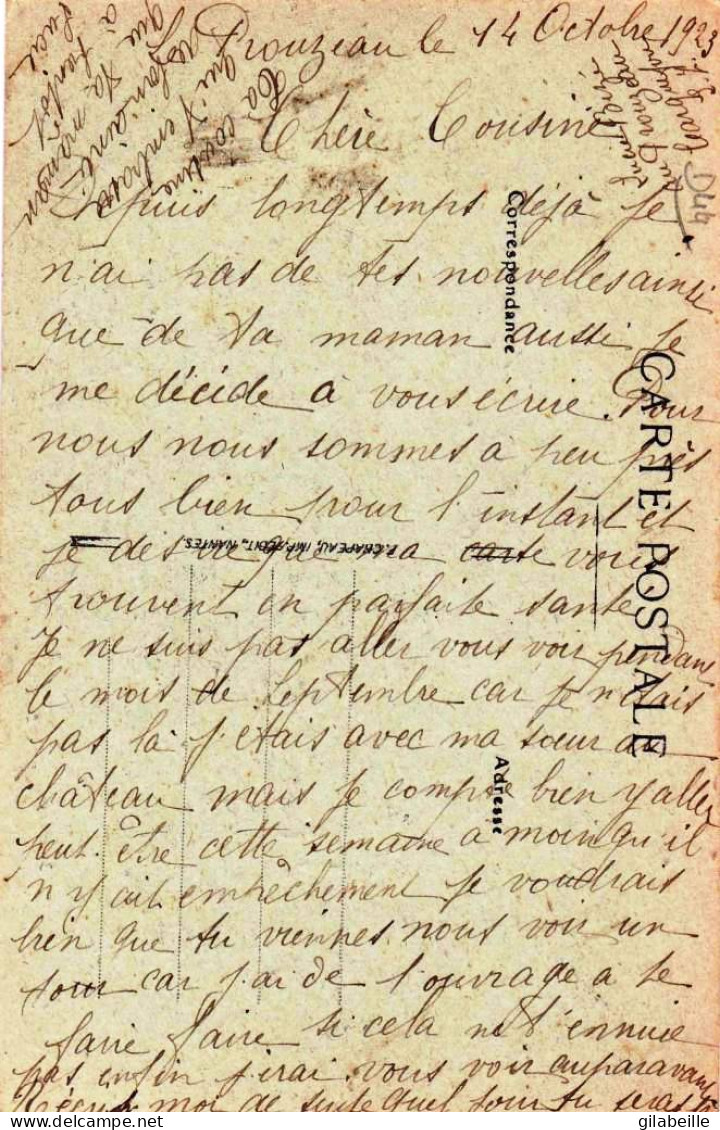 Le Drouzeau le 14 Octobre 1923
Chère Cousine
Depuis longtemps déjà Je
n'ai pas de tes nouvelles ainsi
que de ta maman aussi Je
me décide à vous écrire. Pour
nous nous sommes à peu près
tous bien pour l'instant et
je désire que ma carte vous
trouvent en parfaite santé
Je ne suis pas aller vous voir pendant
le mois de Septembre car Je n'étais
pas là J'etais avec ma sœur au
château mais Je compte bien y aller
peut être cette semaine a moin qu'il
n'y ait empêchement Je voudrais
bien que tu viennes nous voir un
tour car J'ai de l'ouvrage a te
faire faire si cela ne t'ennuie
pas enfin J'irai vous voir auparavant
Récrit moi de suite quel jour tu seras
Ta cousine
qui t'embrasse
ainsi
que ta maman
à
Correspondance
CARTE POSTALE
Adresse
F. CHAPEAU, IMP. EDIT., NANTES
D44
gilabeille